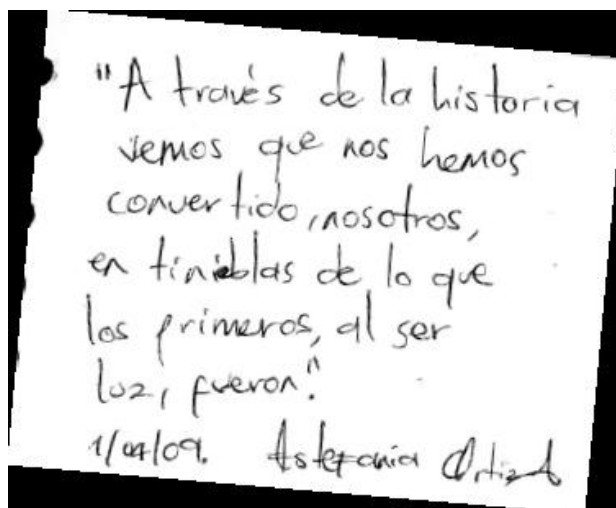 "A través de la historia
vemos que nos hemos
convertido, nosotros,
en tinieblas de lo que
los primeros, al ser
luz, fueron."
1/04/09. Astefania Ortiz